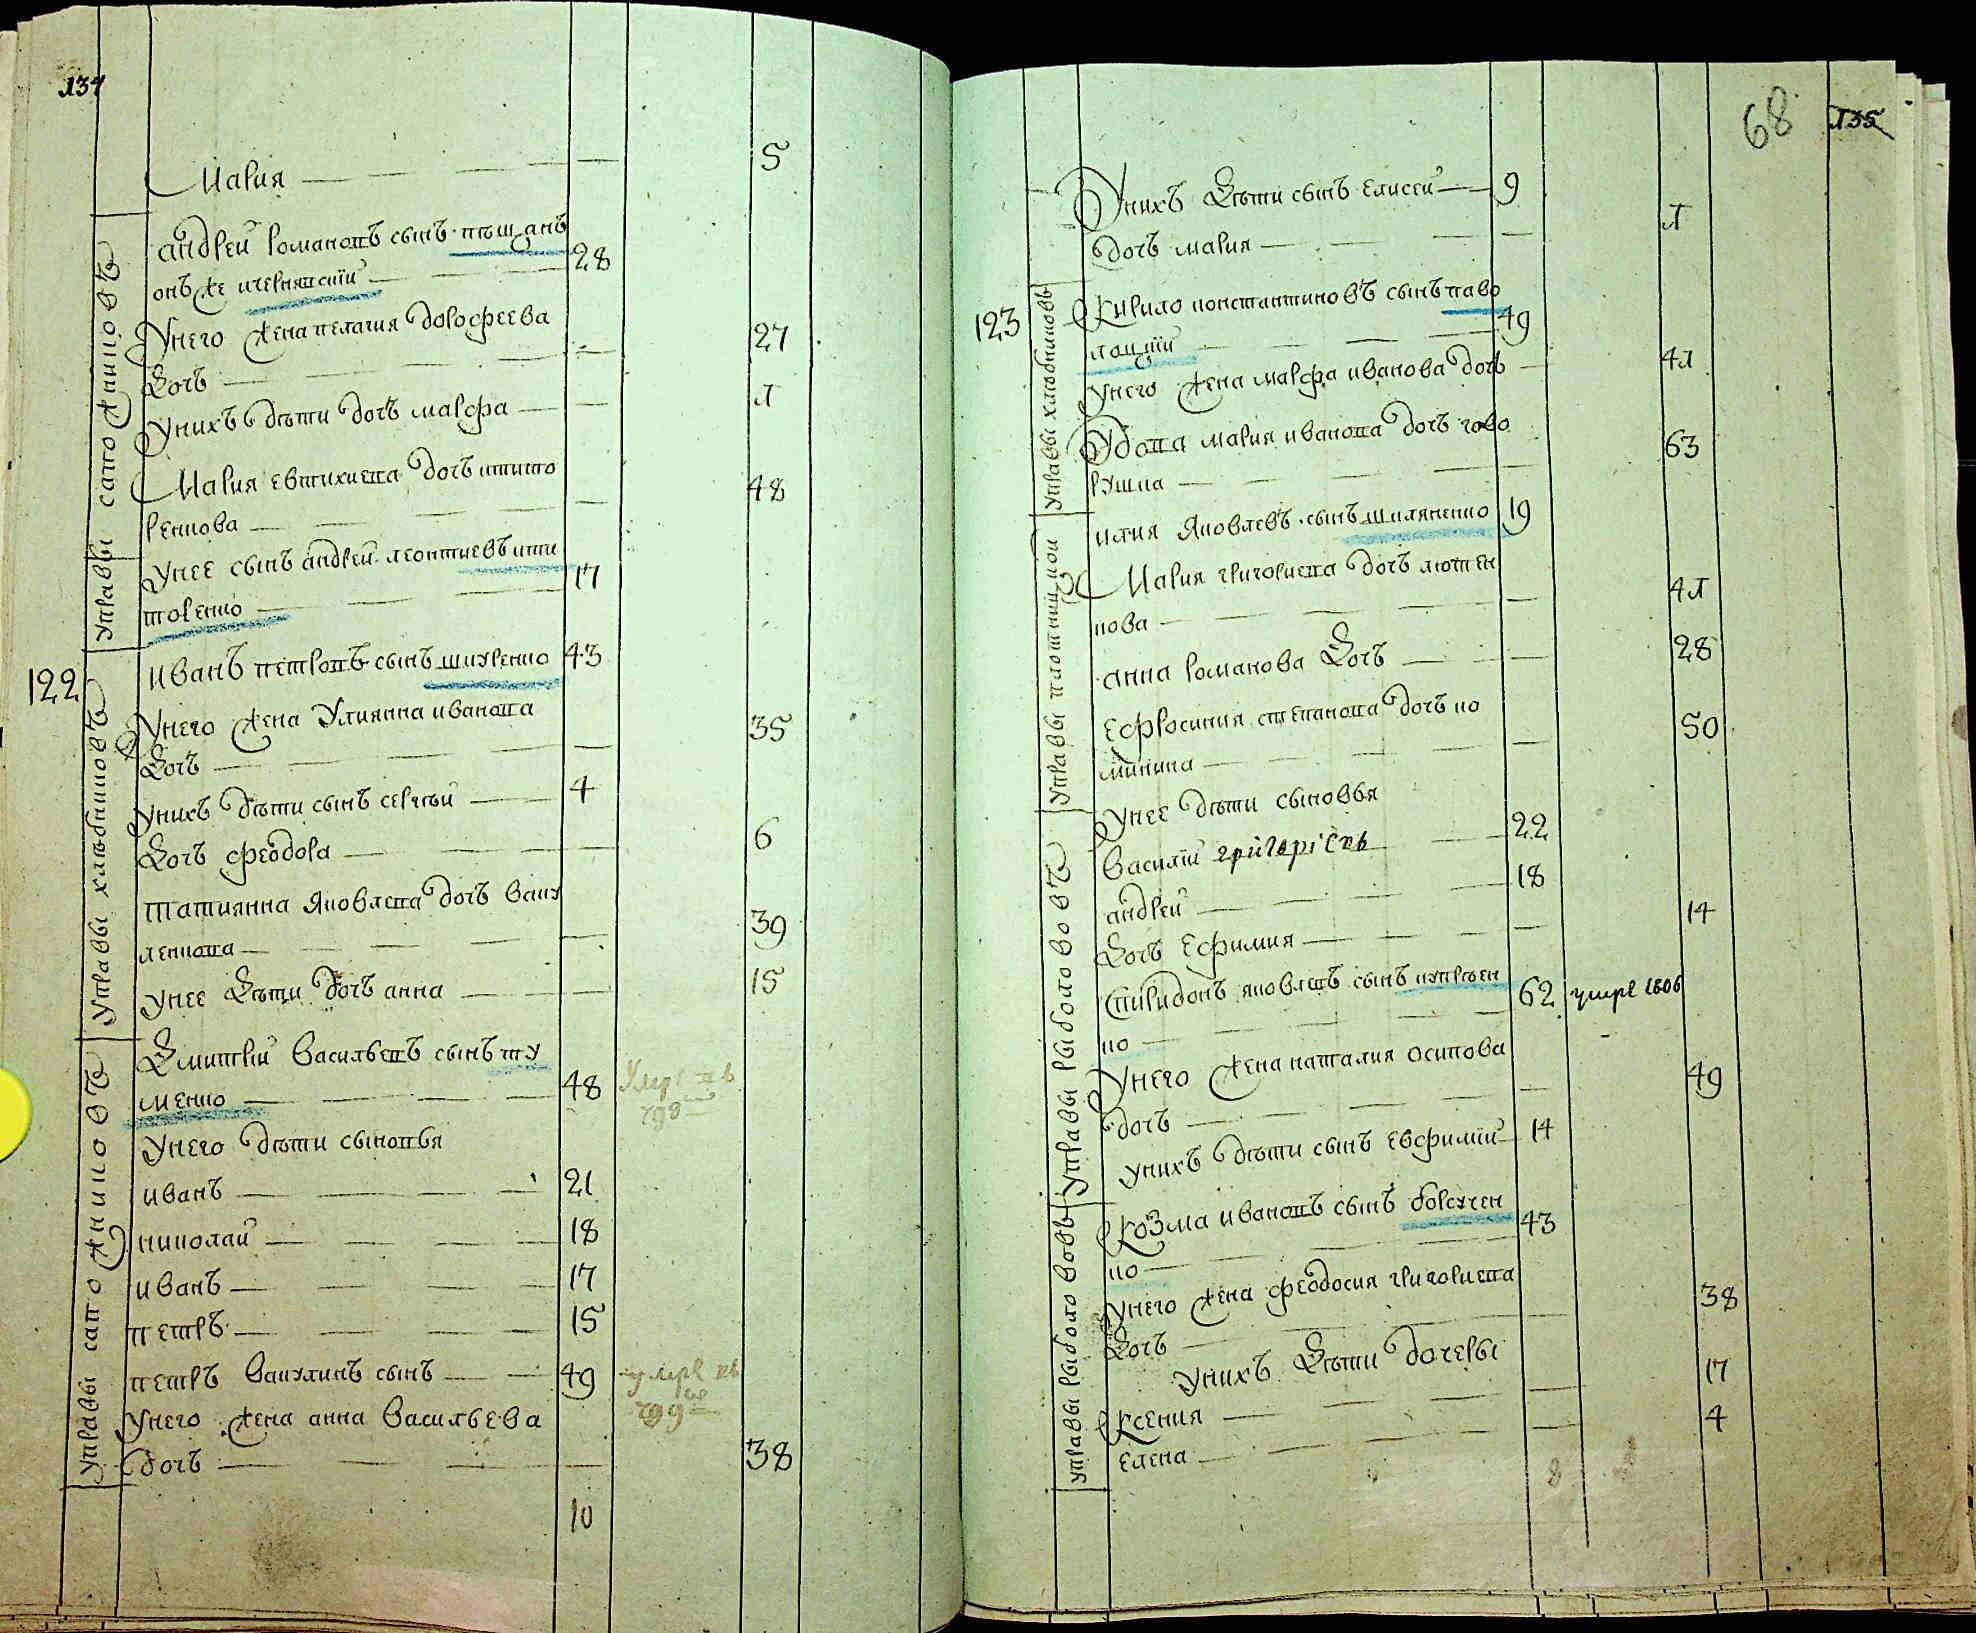 134
Мария 5
Андрей Романовъ сынъ пещанъ
онъ же ичернявский 28
У него жена Пелагия Дорофеева
дочъ 27
У нихъ дети дочъ Марфа 1
Мария Евтихиева дочъ ктито
ренкова 48
У нее сынъ Андрей Леонтиевъ кти
торенко 17
управы сапожниковъ
122
Иванъ Петровъ сынъ шкуренко 43
У него жена Улиянна Иванова
дочъ 35
У нихъ дети сынъ Сергей 4
дочъ Феодора 6
Татиянна Яковлева дочъ ваку
ленкова 39
У нее дети дочъ Анна 15
управы хлебниковъ
Дмитрий Васильевъ сынъ ту
менко 48
умре в
798
У него дети сыновья
Иванъ 21
Николай 18
Иванъ 17
Петръ 15
Петръ Вакулинъ сынъ 49
умре въ
799
У него жена Анна Васильева
дочъ 38
управы сапожниковъ
10
68
135
У нихъ дети сынъ Елисей 9
дочъ Мария 1
123
Кирило Константиновъ сынъ паво
лоцкий 49
У него жена Марфа Иванова дочъ 41
Удова Мария Иванова дочъ гово
рушка 63
управы хлебниковъ
Илия Яковлевъ сынъ шиляненко 19
Мария Григориева дочъ лютен
кова 41
Анна Романова дочъ 28
Ефросиния Степанова дочъ ко
микина 50
управы плотницкой
У нее дети сыновья
Василий григоріевъ 22
Андрей 18
дочъ Ефимия 14
Спиридонъ Яковлевъ сынъ купреен
ко 62 умре 1806
У него жена Наталия Осипова
дочъ 49
У нихъ дети сынъ Евфимий 14
управы рыболововъ
Козма Ивановъ сынъ борсучен
ко 43
У него жена Феодосия Григориева
дочъ 38
У нихъ дети дочеры
Ксения 17
Елена 4
управы рыболововъ
8